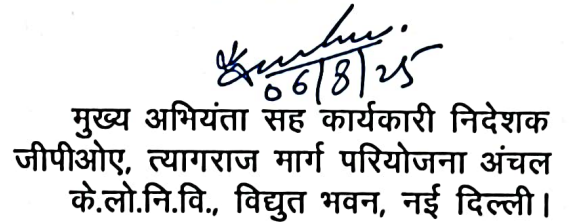 06/8/25
मुख्य अभियंता सह कार्यकारी निदेशक
जीपीओए, त्यागराज मार्ग परियोजना अंचल
के.लो.नि.वि., विद्युत भवन, नई दिल्ली।